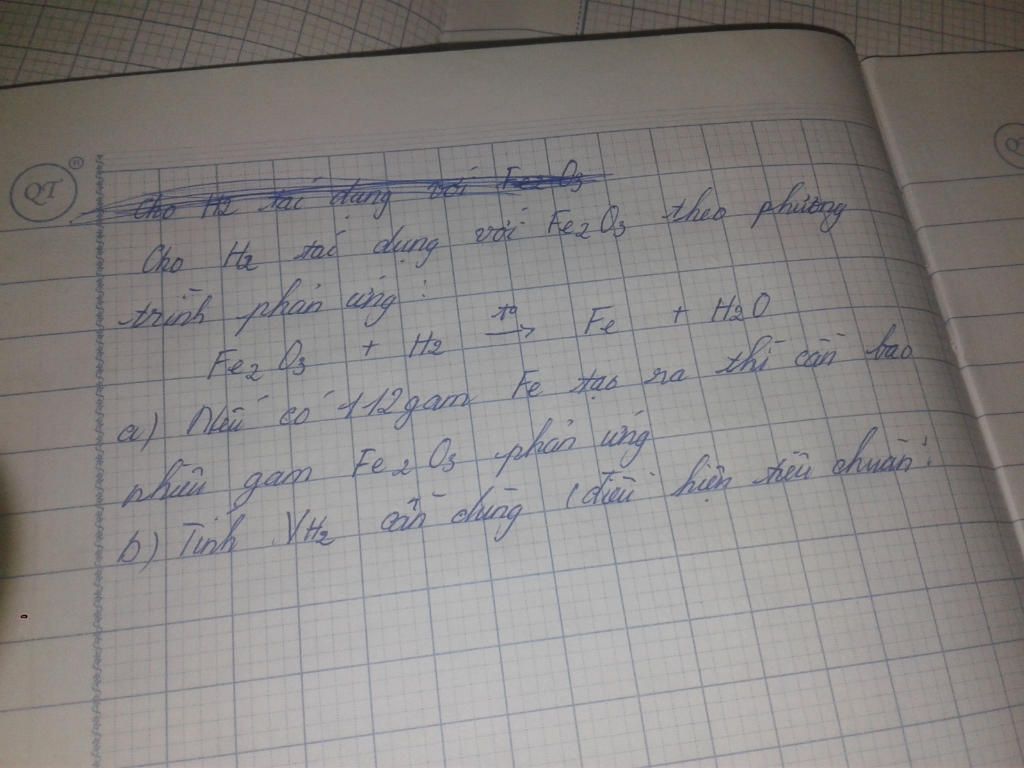 QT ®
Cho H2 tác dụng với Fe2O3
Cho H2 tác dụng với Fe2O3 theo phương
trình phản ứng:
Fe2O3 + H2 →(to) Fe + H2O
a) Nếu có 112gam Fe tạo ra thì cần bao
nhiêu gam Fe2O3 phản ứng
b) Tính VH2 cần dùng (điều kiện tiêu chuẩn!